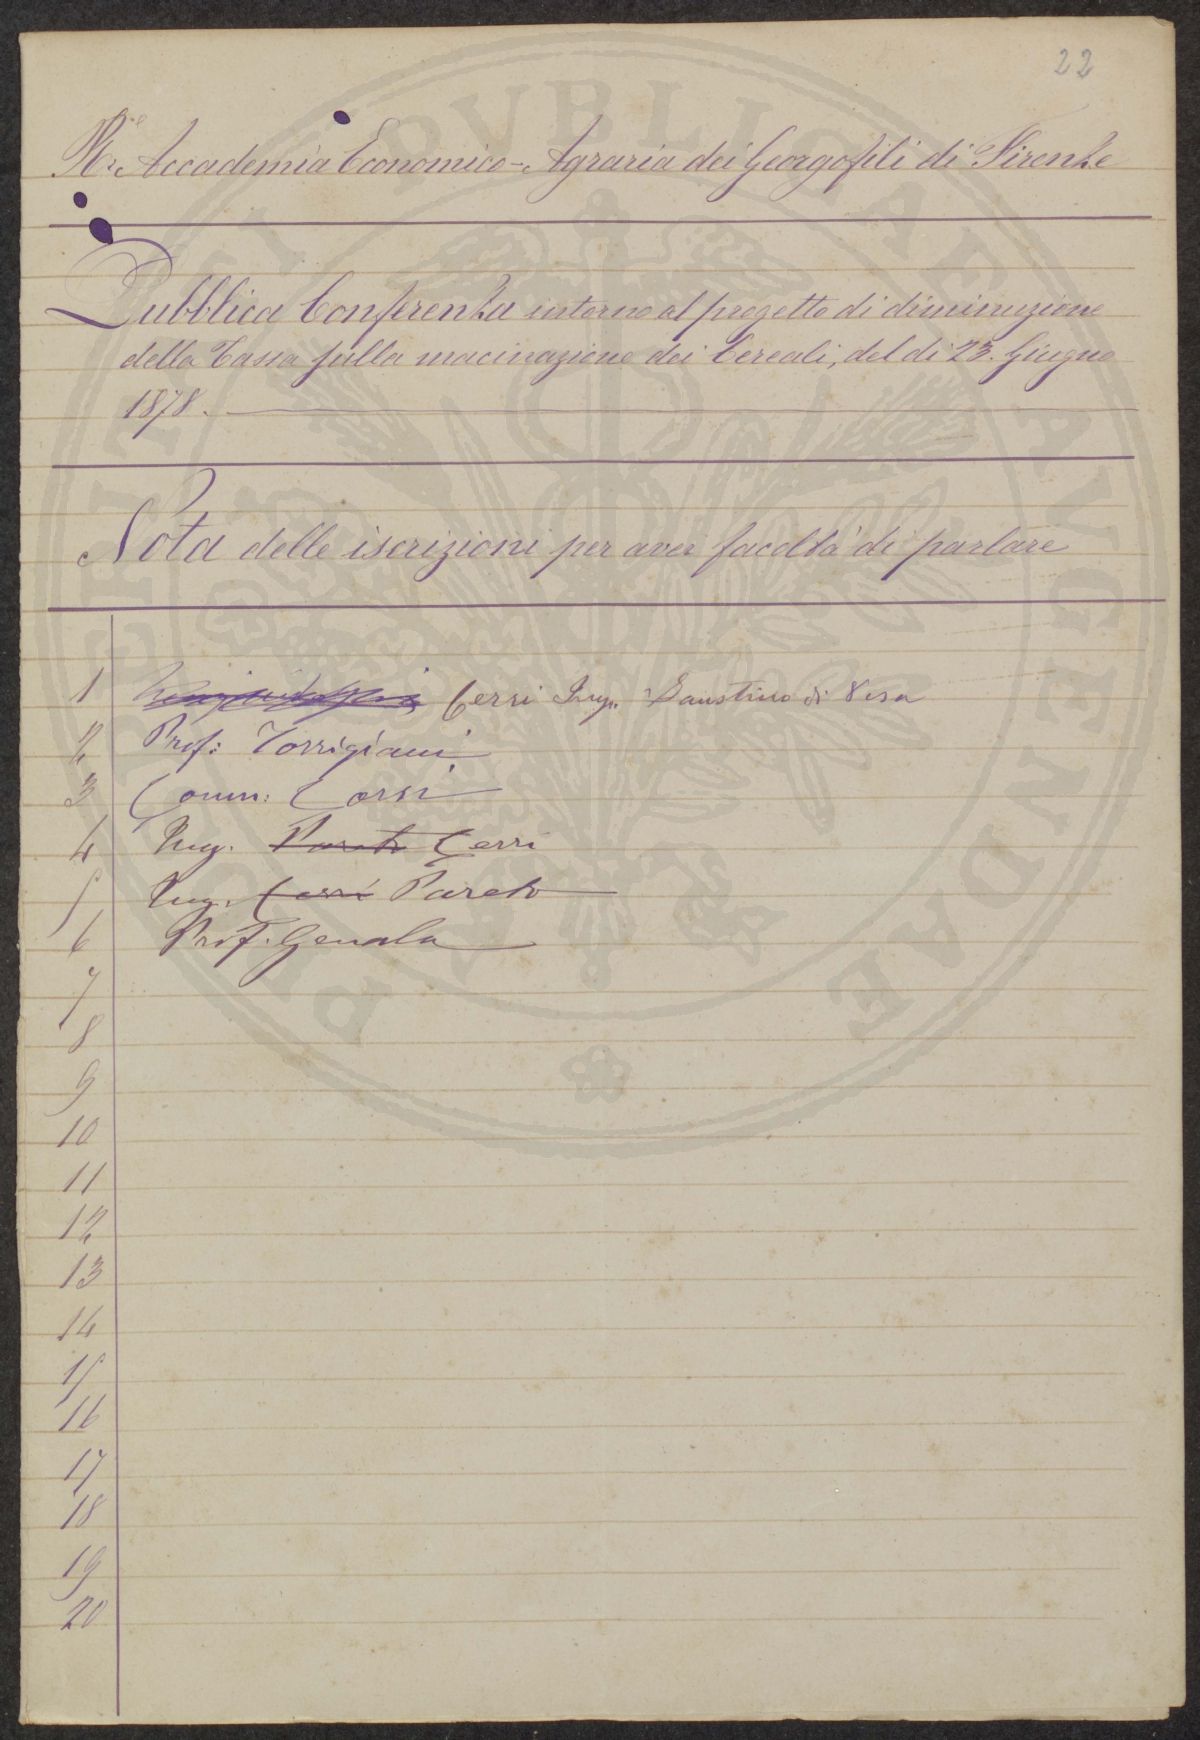 22
R.e Accademia Economico-Agraria dei Georgofili di Firenze
Pubblica Conferenza intorno al progetto di diminuzione
della Tassa sulla macinazione dei Cereali, del dì 23. Giugno
1878.
Nota delle iscrizioni per aver facoltà di parlare
1 Cerri Ing. Faustino di Pisa
2 Prof: Torrigiani
3 Comm: Corsi
4 Ing. Pareto Cerri
5 Ing. Cerri Pareto
6 Prof. Genala
7
8
9
10
11
12
13
14
15
16
17
18
19
20